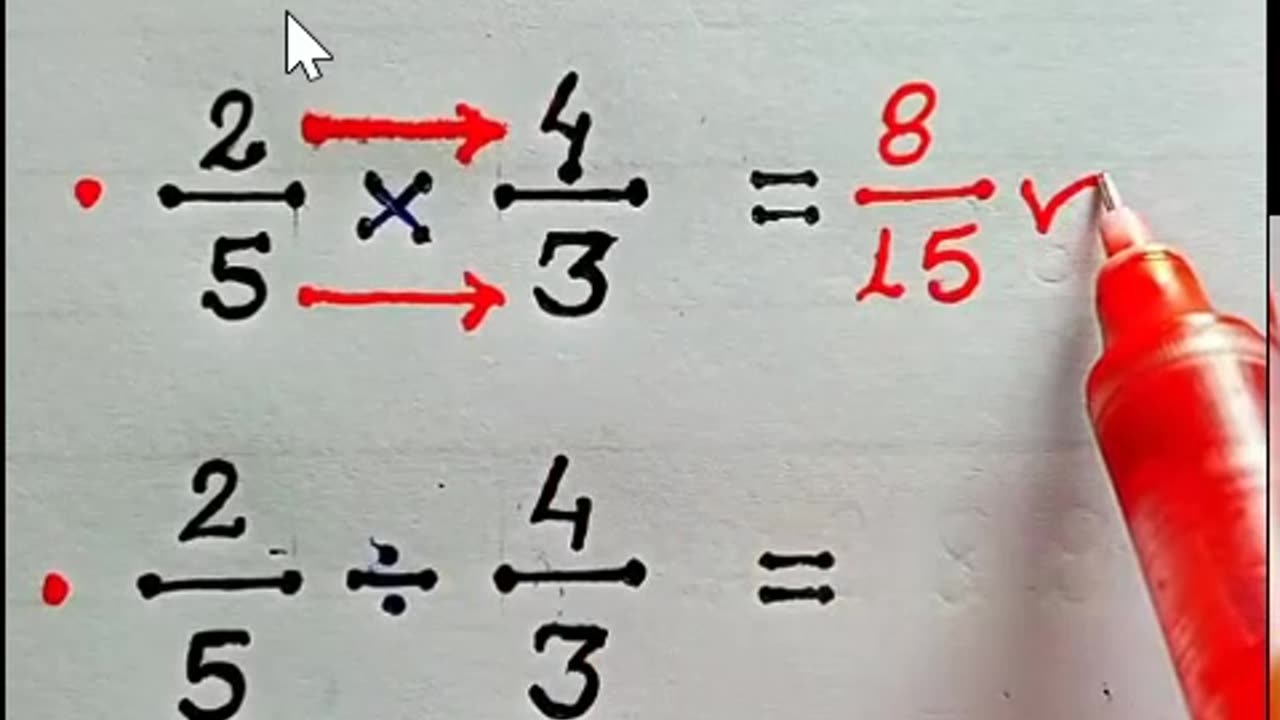 2/5 × 4/3 = 8/15
2/5 ÷ 4/3 =